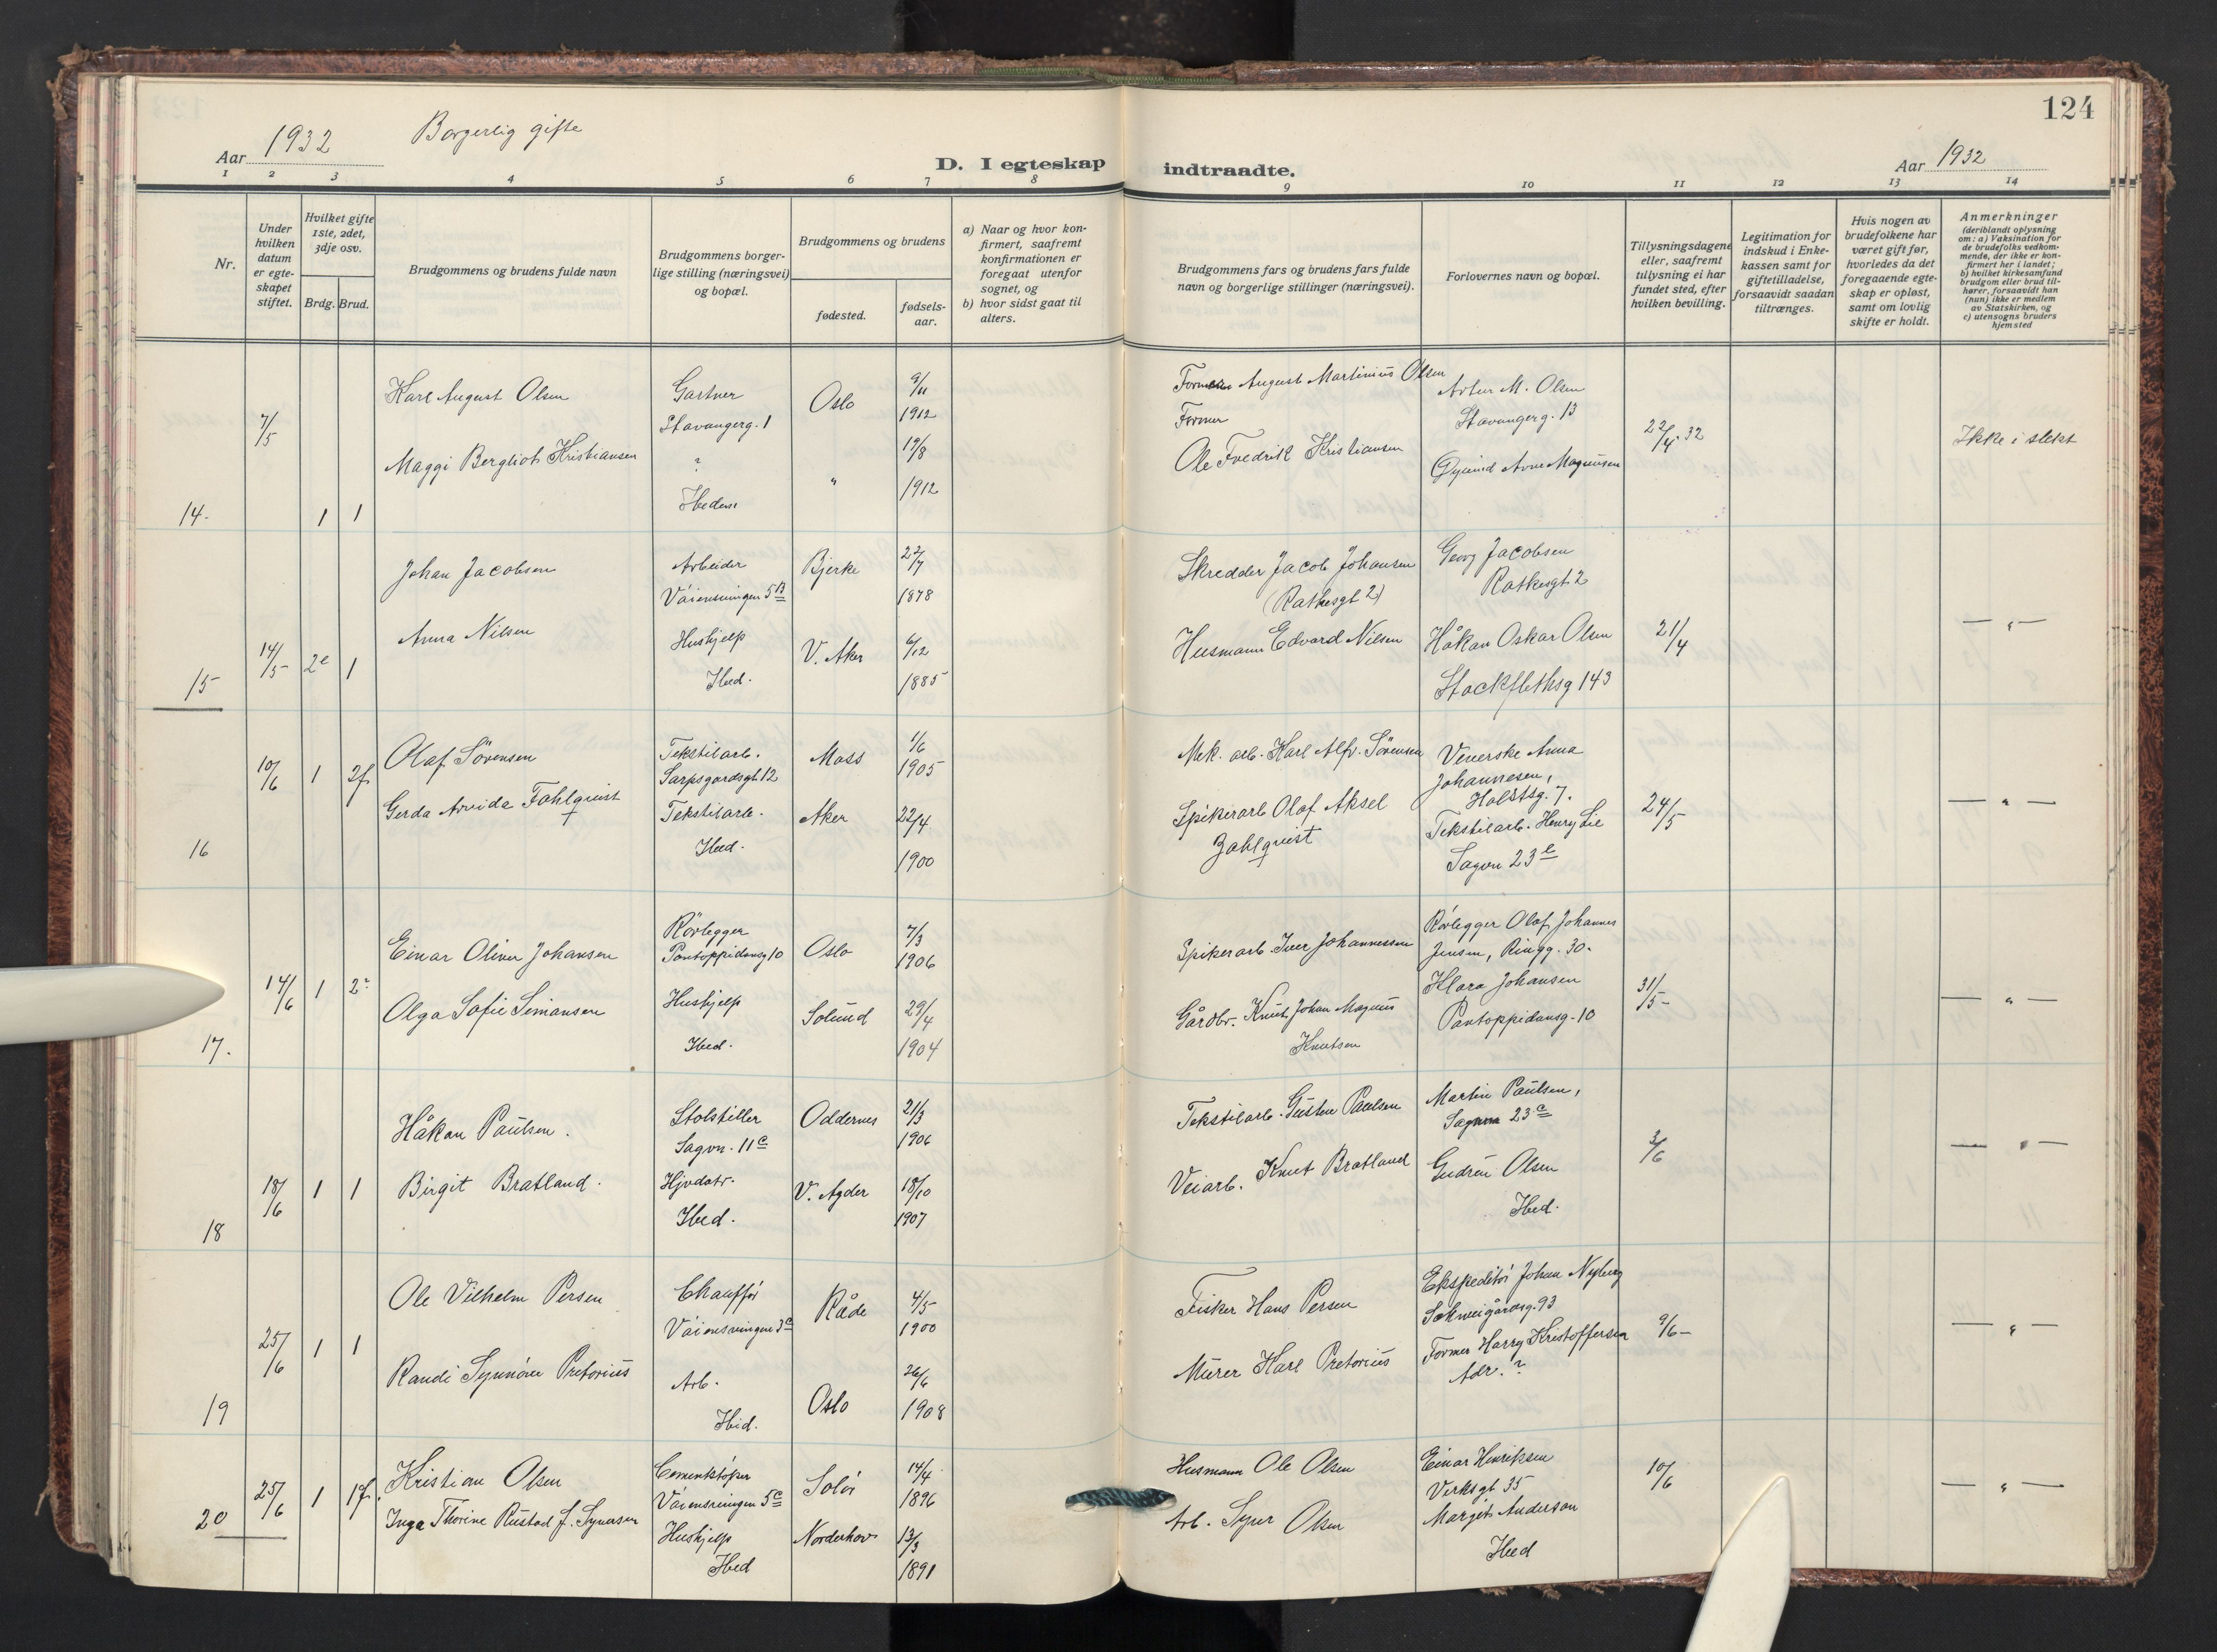 124
Aar 1932 Borgerlig gifte
D. I egteskap indtraadte.
Aar 1932
1 2 3 4 5 6 7 8 9 10 11 12 13 14
Nr.
Under hvilken datum er egte-skapet stiftet.
Hvilket gifte 1ste, 2det, 3dje osv.
Brdg. Brud.
Brudgommens og brudens fulde navn
Brudgommens borger-lige stilling (næringsvei) og bopæl.
Brudgommens og brudens
fødested.
fødsels-aar.
a) Naar og hvor kon-firmert, saafremt konfirmationen er foregaat utenfor sognet, og
b) hvor sidst gaat til alters.
Brudgommens fars og brudens fars fulde navn og borgerlige stillinger (næringsvei).
Forlovernes navn og bopæl.
Tillysningsdagene eller, saafremt tillysning ei har fundet sted, efter hvilken bevilling.
Legitimation for indskud i Enke-kassen samt for giftetilladelse, forsaavidt saadan tiltrænges.
Hvis nogen av brudefolkene har været gift før, hvorledes da det foregaaende egte-skap er opløst, samt om lovlig skifte er holdt.
Anmerkninger
(deriblandt oplysning om: a) Vaksination for de brudefolks vedkom-mende, der ikke er kon-firmert her i landet;
b) hvilket kirkesamfund brudgom eller brud til-hører, forsaavidt han (hun) ikke er medlem av Statskirken, og
c) utensogns bruders hjemsted
14. 7/5 1 1
Karl August Olsen
Gartner
Stavangerg. 1
Oslo
9/11
1912
Maggi Bergliot Kristiansen
?
Ibidem
"
19/8
1912
August Martinius Olsen
Former
Ole Fredrik Kristiansen
Artur M. Olsen
Stavangerg. 13
Øyvind Arne Magnusen
22/4. 32
Ikke i slekt
15 14/5 2e 1
Johan Jacobsen
Arbeider
Våiensvingen 5B
Bjerke
22/7
1878
Anna Nilsen
Hushjelp
Ibid.
V. Aker
6/12
1885
Skredder Jacob Johansen
(Ratkesgt 2)
Husmann Edvard Nilsen
Georg Jacobsen
Ratkesgt 2
Håkan Oskar Olsen
Stockflethsg 143
21/4
— " —
16 10/6 1 2f
Olaf Sörensen
Tekstilarb.
Sarpsgardsgt. 12
Moss
1/6
1905
Gerda Arvida Fahlqvist
Tekstilarb.
Ibid.
Aker
22/4
1900
Mek. arb. Karl Alfr. Sörensen
Spikerarb Olof Aksel
Veverske Anna
Johannesen,
Holstsg. 7.
Tekstilarb. Henry Lie
Sagvn 23e
24/5
— " —
17. 14/6 1
Einar Oliver Johansen
Rörlegger
Pontoppidansg 10
Oslo
7/3
1906
Olga Sofie Simonsen
Hushjelp
Ibid.
Solund
29/4
1904
Spikerarb. Iver Johannessen
Gårdbr. Knut Johan Magnus
Knutsen
Rörlegger Olaf Johannes
Jensen, Ringg. 30.
Klara Johansen
Pontoppidansg. 10
31/5
— " —
18 18/6 1 1
Håkon Paulsen.
Sagvn. 11c
Oddernes
21/3
1906
Birgit Bratland.
Hjvdatr.
Ibid.
V. Agder
18/10
1907
Tekstilarb. Gustav Paulsen
Veiarb. Knut Bratland
Martin Paulsen,
Sagvn 23c
Gudrun Olsen
Ibid.
3/6
— " —
19 25/6 1 1
Ole Vilhelm Persen
Chaufför
Våiensvingen 3c
Råde
4/5
1900
Randi Synnöve Pretorius
Arb.
Ibid.
Oslo
26/6
1908
Fisker Hans Persen
Murer Karl Pretorius
Ekspeditör Johan Nyberg
Schweigårdsg. 93
Former Harry Kristoffersen
Adr. ?
9/6
— " —
20 25/6 1 1f.
Kristian Olsen
Cementstöper
Våiensvingen 5c
Solör
14/4
1896
Inga Thorine Rustad f. Syversen
Hushjelp
Ibid
Norderhov
13/3
1891
Husmann Ole Olsen
Arb. Syver Olsen
Einar Henriksen
Verksgt 35
Margit Anderson
Ibid
10/6
— " —